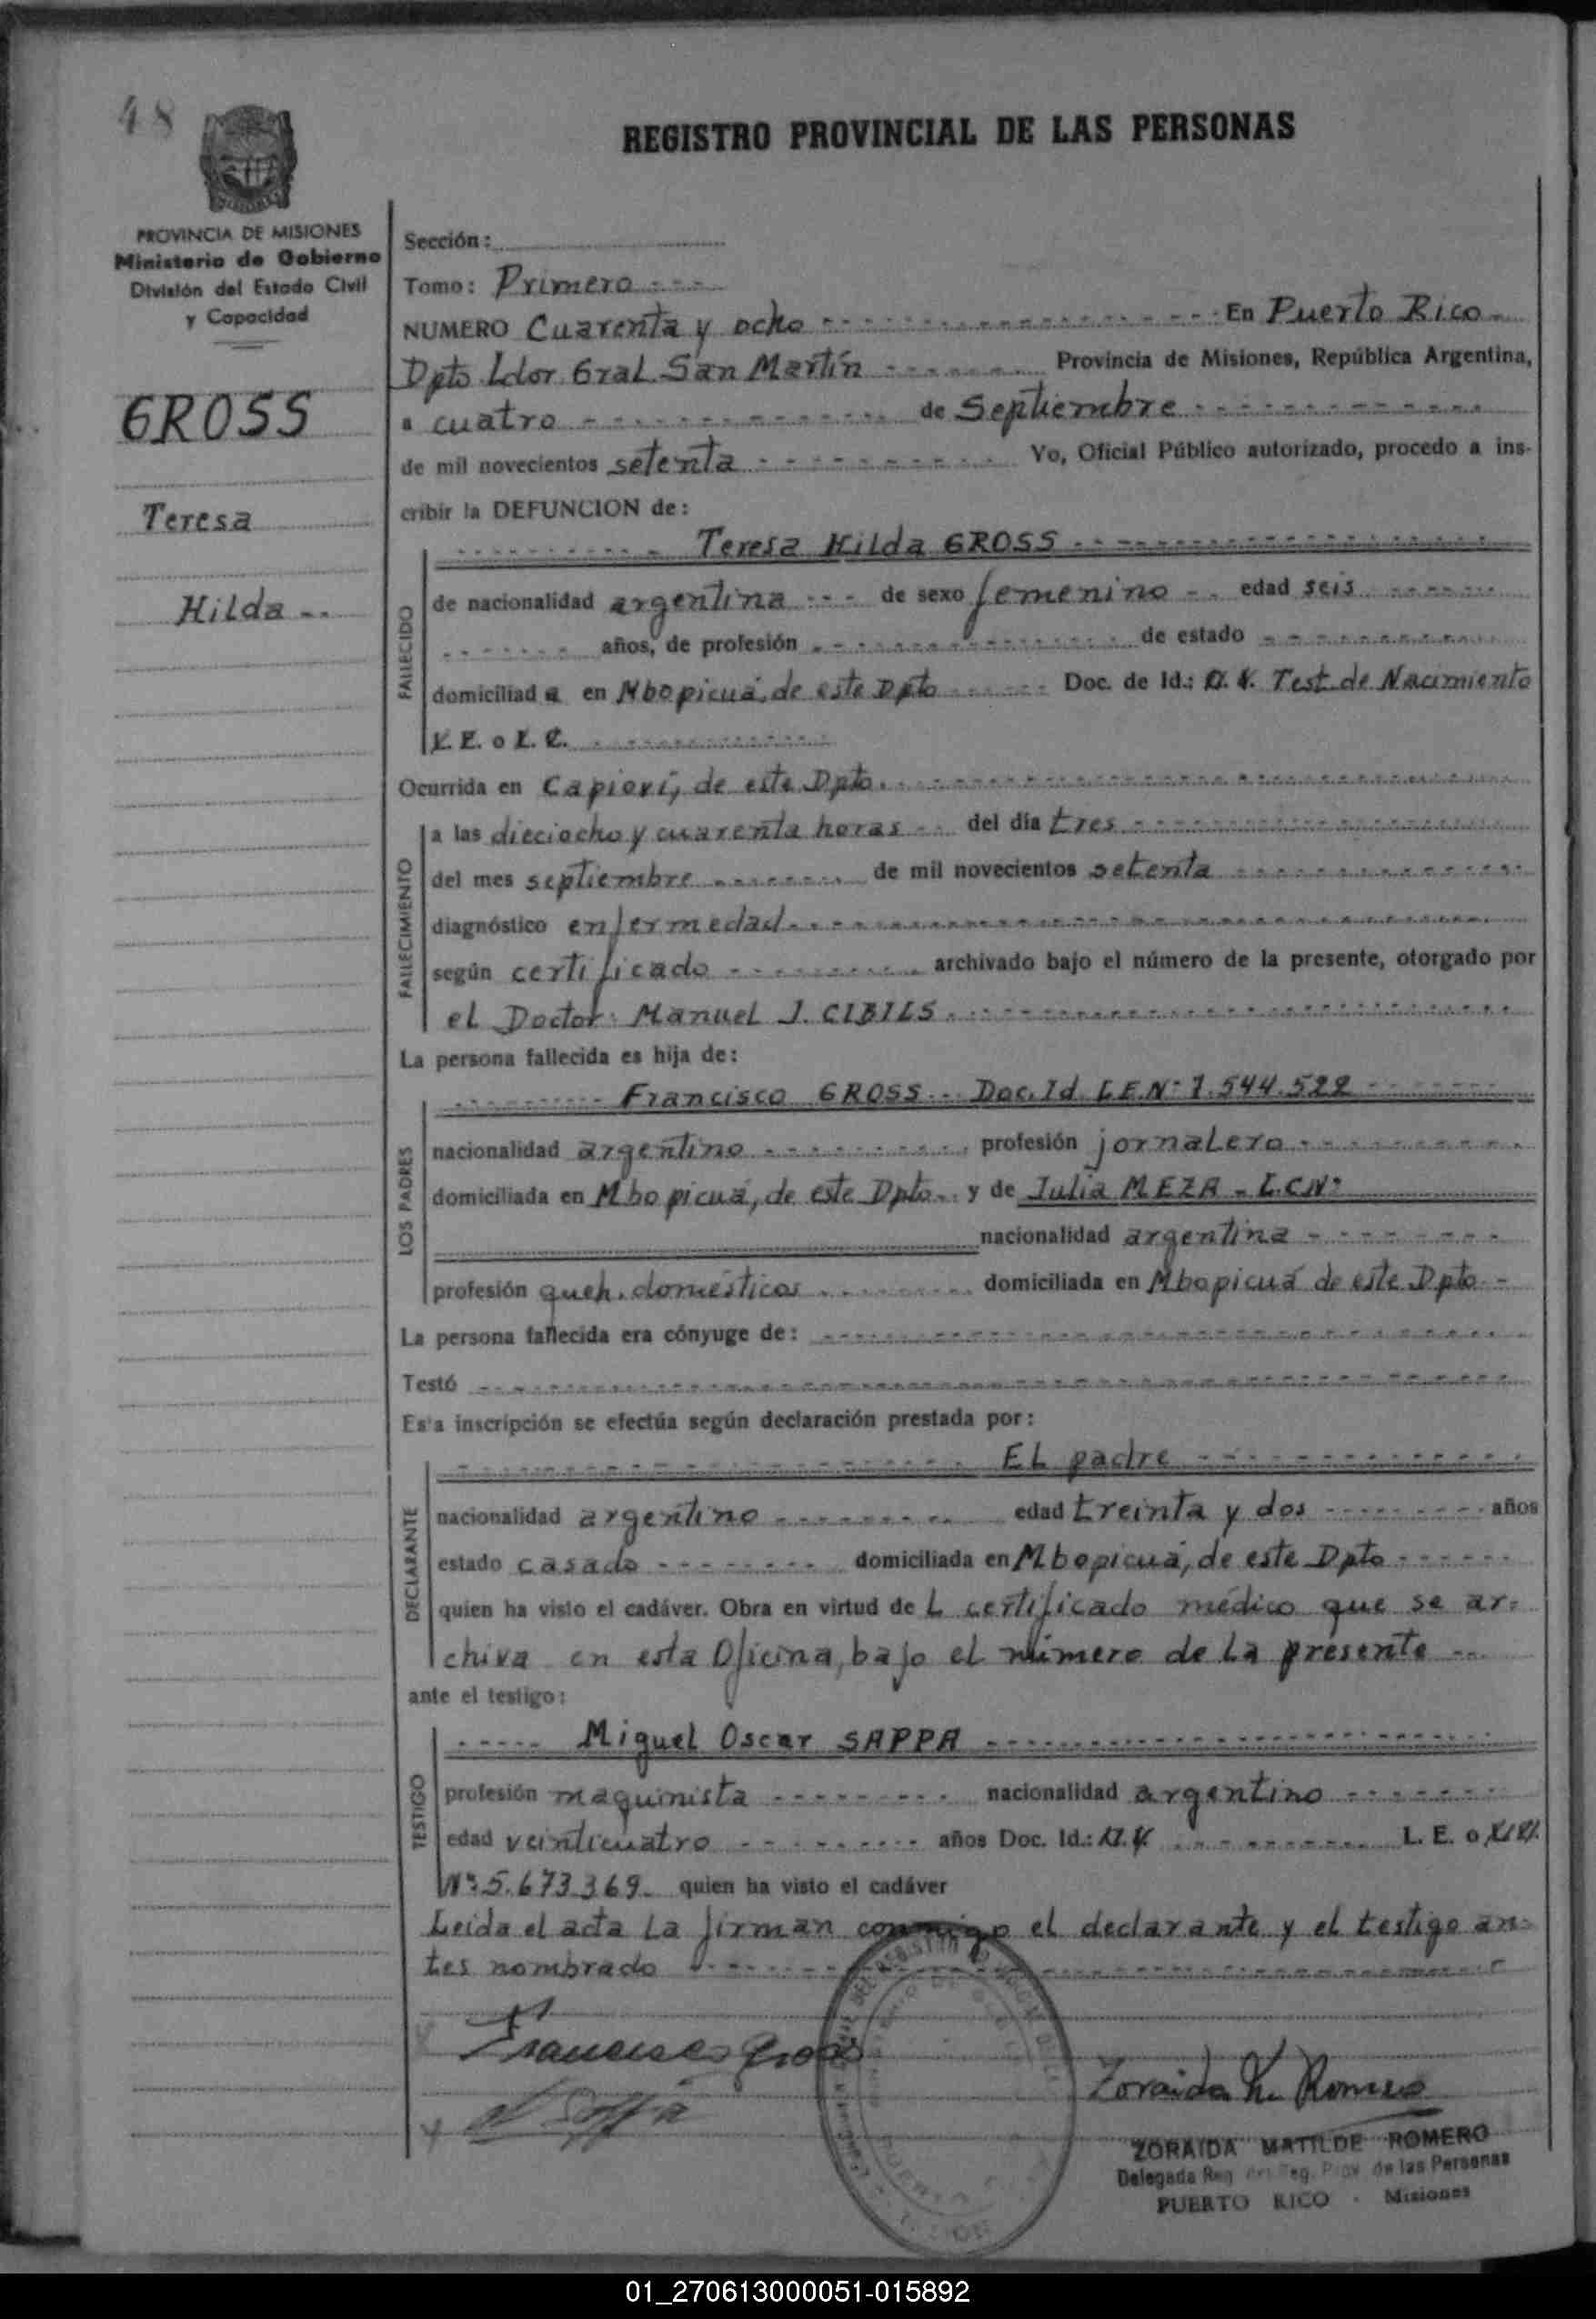 48
REGISTRO PROVINCIAL DE LAS PERSONAS
PROVINCIA DE MISIONES
Ministerio de Gobierno
División del Estado Civil
y Capacidad
GROSS
Teresa
Hilda
Sección:
Tomo: Primero
NUMERO Cuarenta y ocho En Puerto Rico
Dpto Ldor Gral. San Martín Provincia de Misiones, República Argentina,
a cuatro de Septiembre
de mil novecientos setenta Yo, Oficial Público autorizado, procedo a ins-
cribir la DEFUNCION de:
Teresa Hilda GROSS
FALLECIDO
de nacionalidad argentina de sexo femenino edad seis
años, de profesión de estado
domiciliad a en Mbopicuá, de este Dpto Doc. de Id.: Test. de Nacimiento
L. E. o L. C.
Ocurrida en Capioví, de este Dpto.
FALLECIMIENTO
a las dieciocho y cuarenta horas del día tres
del mes septiembre de mil novecientos setenta
diagnóstico enfermedad
según certificado archivado bajo el número de la presente, otorgado por
el Doctor Manuel J. CIBILS
La persona fallecida es hija de:
LOS PADRES
Francisco GROSS Doc. Id L.E.Nº 7.544.522
nacionalidad argentino profesión jornalero
domiciliada en Mbopicuá, de este Dpto. y de Julia MEZA - L.C.Nº
nacionalidad argentina
profesión queh. domésticos domiciliada en Mbopicuá de este Dpto
La persona fallecida era cónyuge de:
Testó
Esta inscripción se efectúa según declaración prestada por:
DECLARANTE
EL padre
nacionalidad argentino edad treinta y dos años
estado casado domiciliada en Mbopicuá, de este Dpto
quien ha visto el cadáver. Obra en virtud de L certificado médico que se ar-
chiva en esta Oficina, bajo el número de la presente
ante el testigo:
TESTIGO
Miguel Oscar SAPPA
profesión maquinista nacionalidad argentino
edad veinticuatro años Doc. Id.: L. E. o
Nº 5.673.369 quien ha visto el cadáver
Leída el acta la firman conmigo el declarante y el testigo an-
tes nombrado
Francisco Gross
Zoraida M. Romero
ZORAIDA MATILDE ROMERO
Delegada Reg. Prov. de las Personas
PUERTO RICO - Misiones
01_270613000051-015892